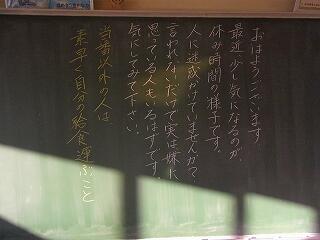 おはようございます
最近少し気になるのが、
休み時間の様子です。
人に迷惑かけていませんか？
言われないだけで実は嫌だと
思っている人もいるはずです。
気にしてみて下さい。
当番以外の人は
素早く自分の給食運ぶこと